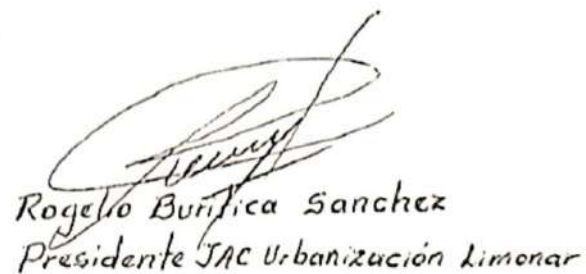 Rogelio Buritica Sanchez
Presidente JAC Urbanización Limonar